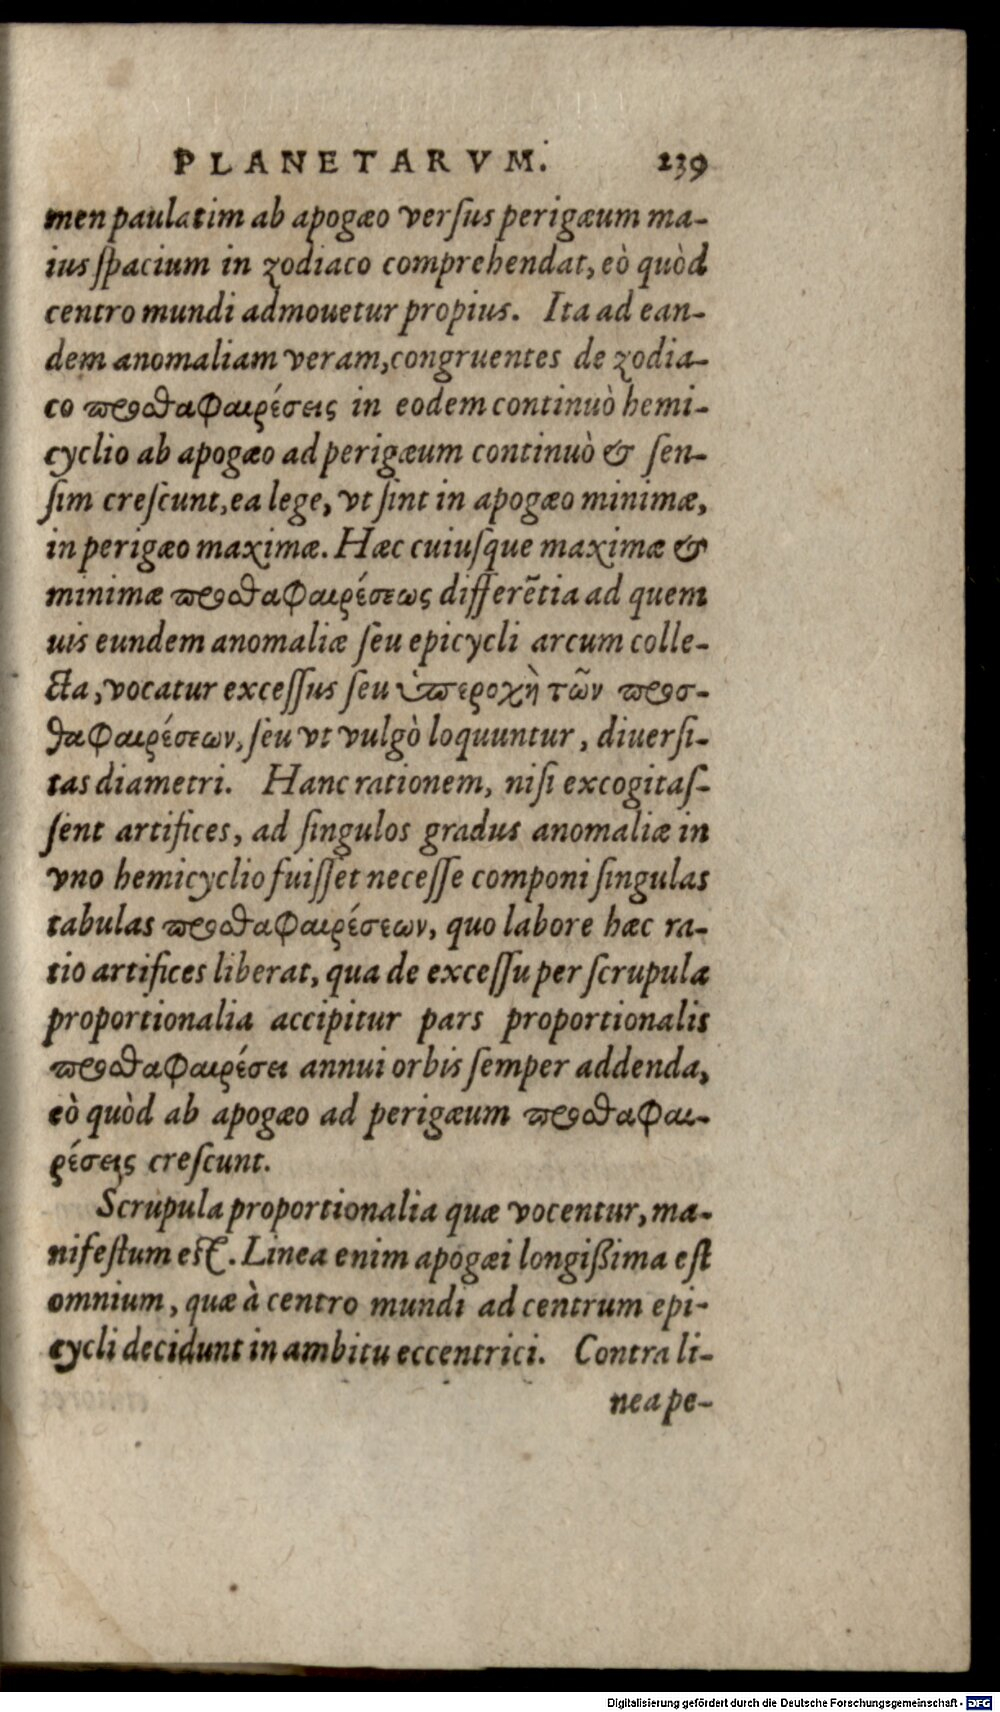 PLANETARVM. 239
men paulatim ab apogæo versus perigæum ma-
ius spacium in zodiaco comprehendat, eò quòd
centro mundi admouetur propius. Ita ad ean-
dem anomaliam veram, congruentes de zodia-
co προσθαφαιρέσεις in eodem continuò hemi-
cyclio ab apogæo ad perigæum continuò & sen-
sim crescunt, ea lege, vt sint in apogæo minimæ,
in perigæo maximæ. Hæc cuiusque maximæ &
minimæ προσθαφαιρέσεως differẽtia ad quem
uis eundem anomaliæ seu epicycli arcum colle-
cta, vocatur excessus seu ὑπεροχὴ τῶν προσ-
θαφαιρέσεων, seu vt vulgò loquuntur, diuersi-
tas diametri. Hanc rationem, nisi excogitas-
sent artifices, ad singulos gradus anomaliæ in
vno hemicyclio fuisset necesse componi singulas
tabulas προσθαφαιρέσεων, quo labore hæc ra-
tio artifices liberat, qua de excessu per scrupula
proportionalia accipitur pars proportionalis
προσθαφαιρέσει annui orbis semper addenda,
eò quòd ab apogæo ad perigæum προσθαφαι-
ρέσεις crescunt.
Scrupula proportionalia quæ vocentur, ma-
nifestum est. Linea enim apogæi longißima est
omnium, quæ à centro mundi ad centrum epi-
cycli decidunt in ambitu eccentrici. Contra li-
nea pe-
Digitalisierung gefördert durch die Deutsche Forschungsgemeinschaft - DFG